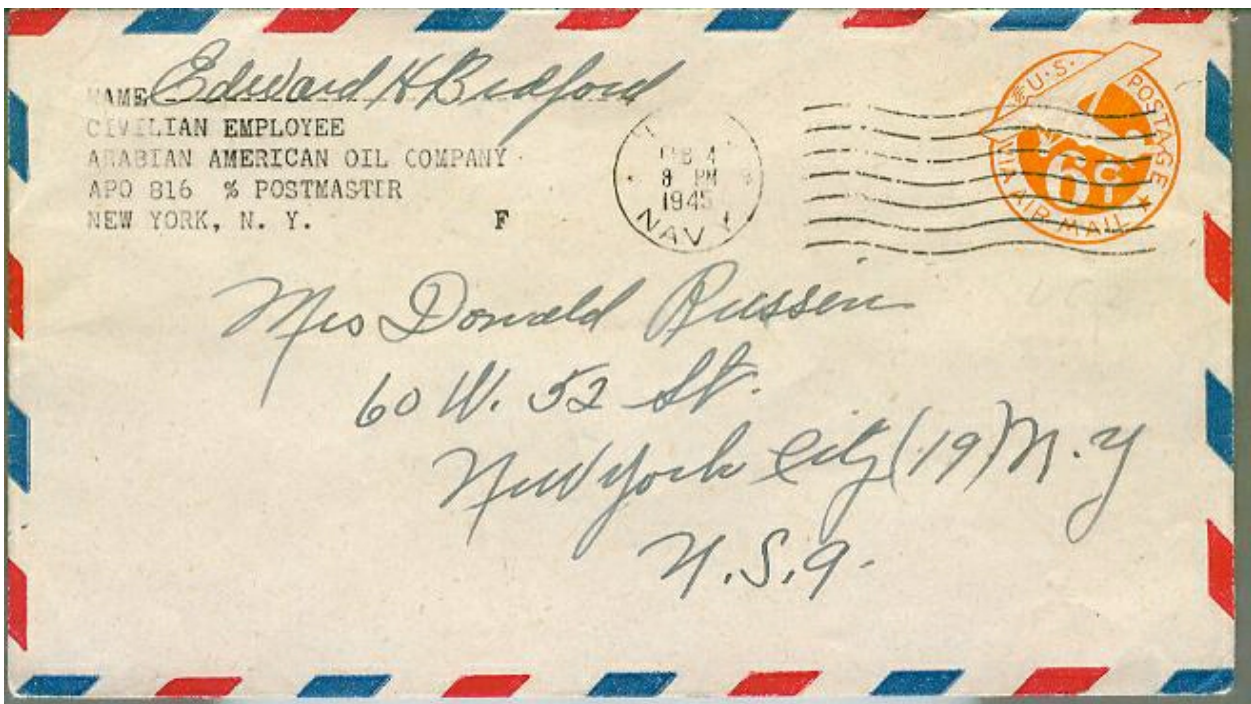 NAME Edward H Bedford
CIVILIAN EMPLOYEE
ARABIAN AMERICAN OIL COMPANY
APO 816 % POSTMASTER
NEW YORK, N. Y. F
FEB 4
8 PM
1945
NAVY
U.S. POSTAGE
VIA AIR MAIL
6¢
Mrs Donald Russin
60 W. 52 St.
New York City (19) N.Y
U.S.A.